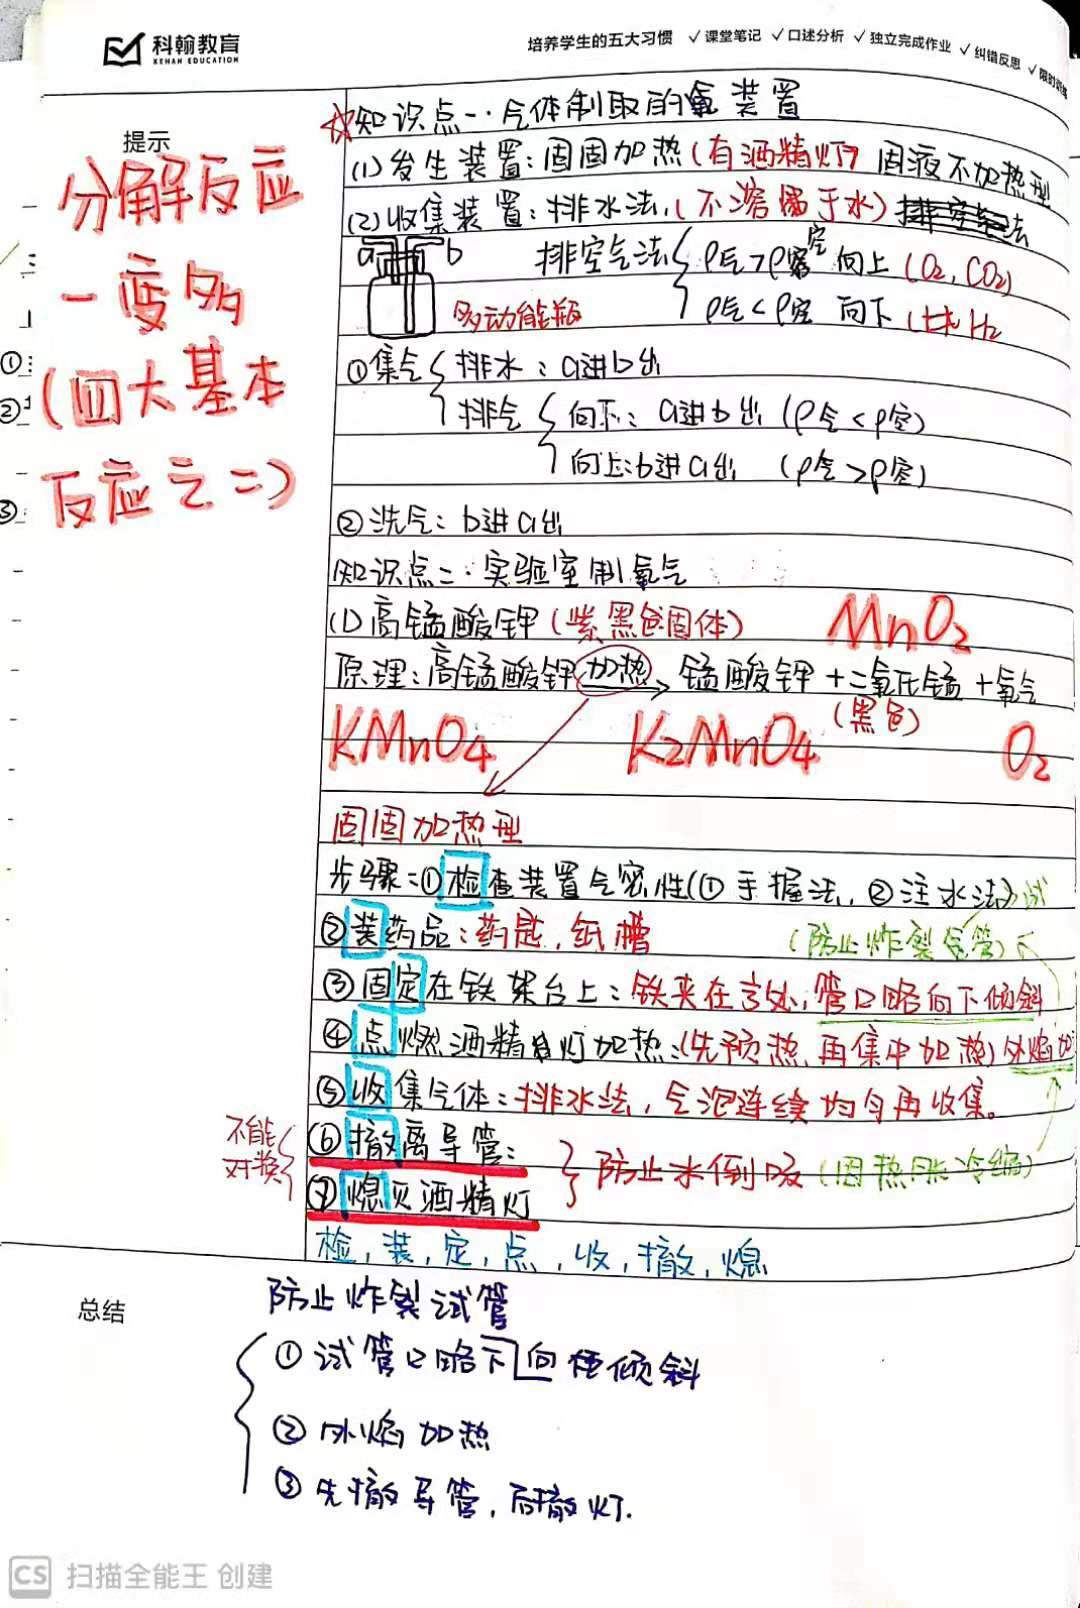 科翰教育
KEHAN EDUCATION
培养学生的五大习惯 ✓课堂笔记 ✓口述分析 ✓独立完成作业 ✓纠错反思 ✓限时训练
提示
分解反应
一变多
(四大基本
反应之二)
①
②
③
☆知识点一·气体制取的装置
(1)发生装置:固固加热(有酒精灯) 固液不加热型
(2)收集装置:排水法,(不溶于水)
排空气法 ρ气>ρ空 向上 (O₂,CO₂)
ρ气<ρ空 向下 (H₂
a b
多功能瓶
①集气 排水:a进b出
排气 向下:a进b出 (ρ气<ρ空)
向上:b进a出 (ρ气>ρ空)
②洗气:b进a出
知识点二·实验室制氧气
(1)高锰酸钾(紫黑色固体) MnO₂
原理:高锰酸钾 加热→ 锰酸钾+二氧化锰+氧气
(黑色)
KMnO₄ K₂MnO₄ O₂
固固加热型
步骤:①检查装置气密性(①手握法,②注水法)
②装药品:药匙,纸槽 (防止炸裂试管)
③固定在铁架台上:铁夹在 处,管口略向下倾斜
④点燃酒精灯加热:(先预热,再集中加热)外焰加
⑤收集气体:排水法,气泡连续均匀再收集。
不能
对换
⑥撤离导管:
防止水倒吸 (因热胀冷缩)
⑦熄灭酒精灯
检,装,定,点,收,撤,熄
总结
防止炸裂试管
①试管口略下向倾斜
②外焰加热
③先撤导管,后撤灯.
CS 扫描全能王 创建